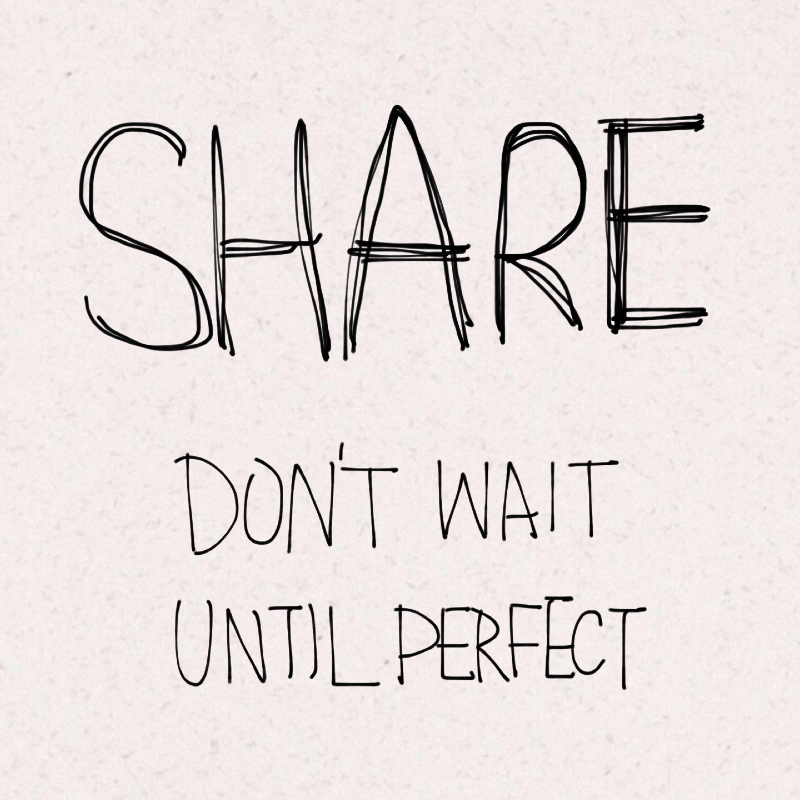 SHARE
DON'T WAIT
UNTIL PERFECT